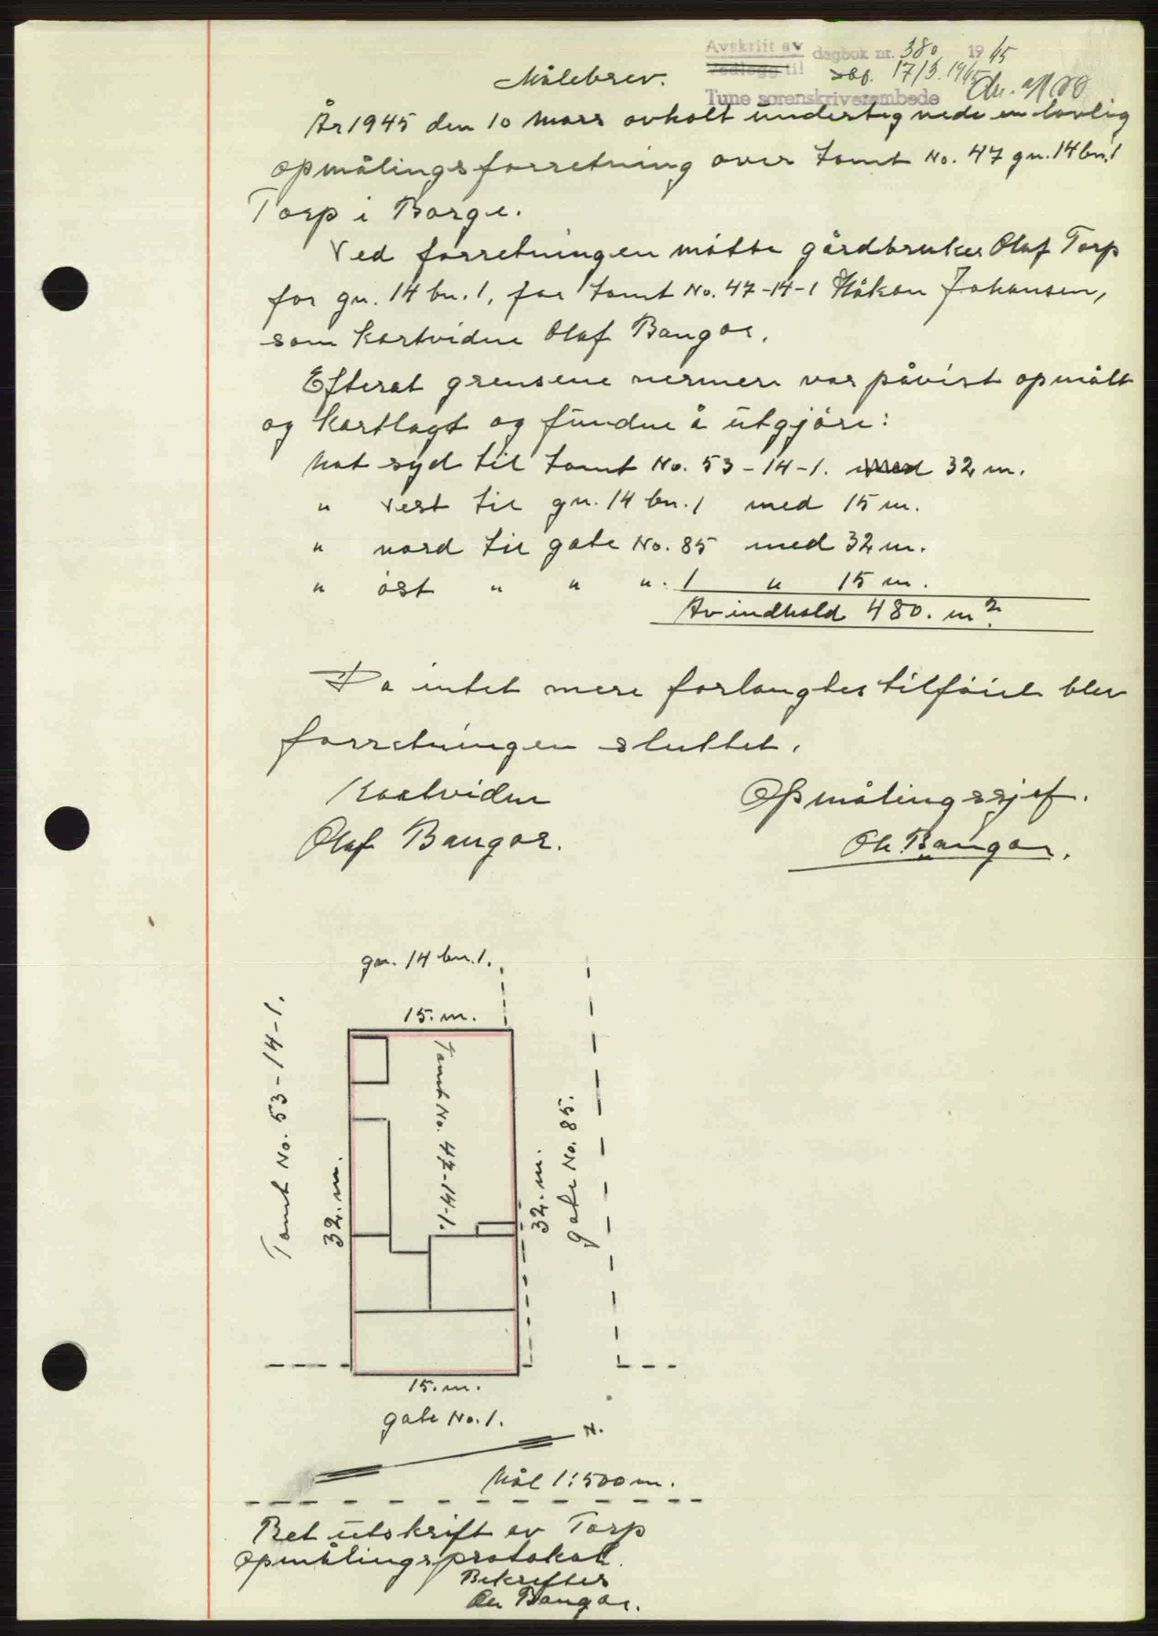 Avskrift av dagbok nr. 380 1945
Vedlegg til 17/3. 1945
Tune sorenskriverembede
Målebrev.
År 1945 den 10 mars avholt undertegnede en lovlig
opmålingsforretning over tomt No. 47 gn. 14 bn. 1
Torp i Borge.
Ved forretningen møtte gårdbruker Olaf Torp
for gn. 14 bn. 1, for tomt No. 47-14-1 Håkon Johansen,
som kartvidne Olaf Bangor.
Efterat grensene nermere var påvist opmålt
og kartlagt og fundne å utgjøre:
Mot syd til tomt No. 53-14-1. med 32 m.
" vest til gn. 14 bn. 1 med 15 m.
" nord til gate No. 85 med 32 m.
" øst " " ". 1 " 15 m.
Av indhold 480. m²
Da intet mere forlangtes tilføiet blev
forretningen sluttet.
Kartvidne Opmålingssjef.
Olaf Bangor. Ole Bangor.
gn. 14 bn. 1.
15. m.
Tomt No. 53-14-1.
32. m.
Tomt No. 47-14-1.
32. m.
gate No. 85.
15. m.
gate No. 1.
N.
Mål 1:500 m.
Ret utskrift av Torp
opmålingsprotokol.
Bekreftes
Ole Bangor.